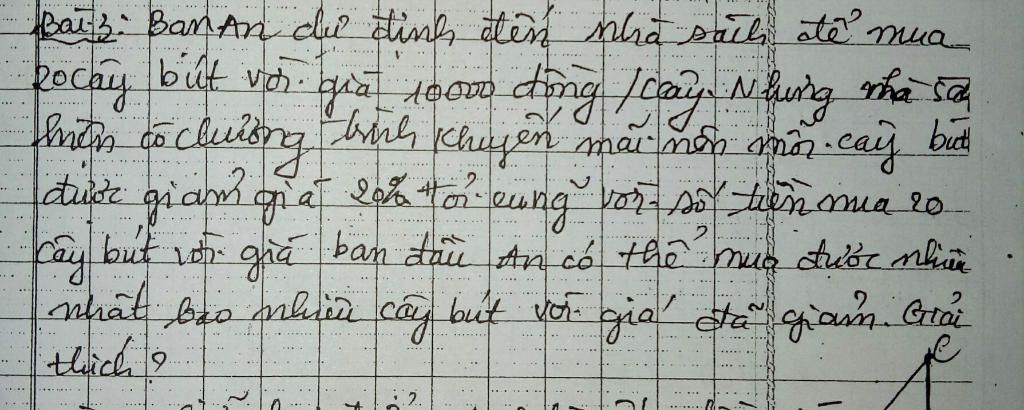 Bài 3: Bạn An dự định đến nhà sách để mua
20 cây bút với giá 10000 đồng /cây. Nhưng nhà sách
hiện có chương trình khuyến mãi nên mỗi cây bút
được giảm giá 20% Hỏi cùng với số tiền mua 20
cây bút với giá ban đầu An có thể mua được nhiều
nhất bao nhiêu cây bút với giá đã giảm. Giải
thích?
C